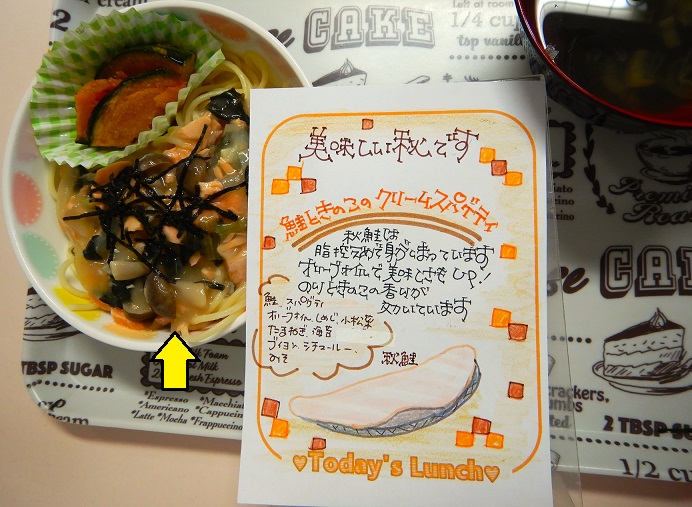 美味しい秋です
鮭ときのこのクリームスパゲティ
秋鮭は
脂控えめで身がしまっています
オリーブオイルで、美味しさを UP!
のりときのこの香りが
効いています
鮭、スパゲティ
オリーブオイル、しめじ、小松菜
たまねぎ、海苔
ブイヨン、シチュールー、
みそ
秋鮭
Today's Lunch
CAKE
1/4 cup
tsp vanilla
TBSP SUGAR
Fresh Espresso
*Espresso
*Macchiato
*Americano
*Cappuccino
*Latte *Mocha *Frappuccino
CAKE
crackers,
2 TBSP SUGAR
1/2 cup